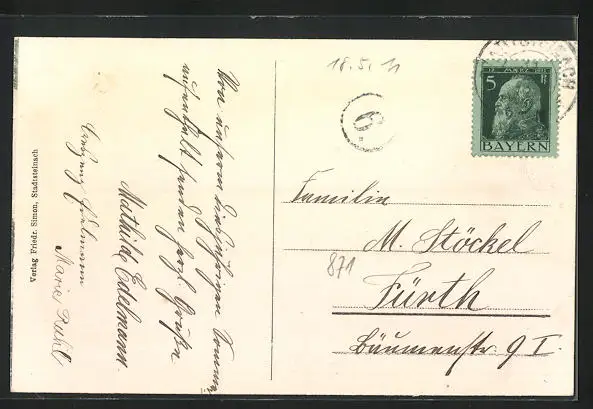 Verlag Friedr. Simon, Stadtsteinach
Von unserem diesjährigen Sommer
aufenthalt senden herzl. Grüße
Mathilde Edelmann.
Edelmann
Marie Ruhl
18.5.11
6
5
12. MÄRZ 1911
BAYERN
Familie
M. Stöckel
871
Fürth
Bäumenstr. 9 I.